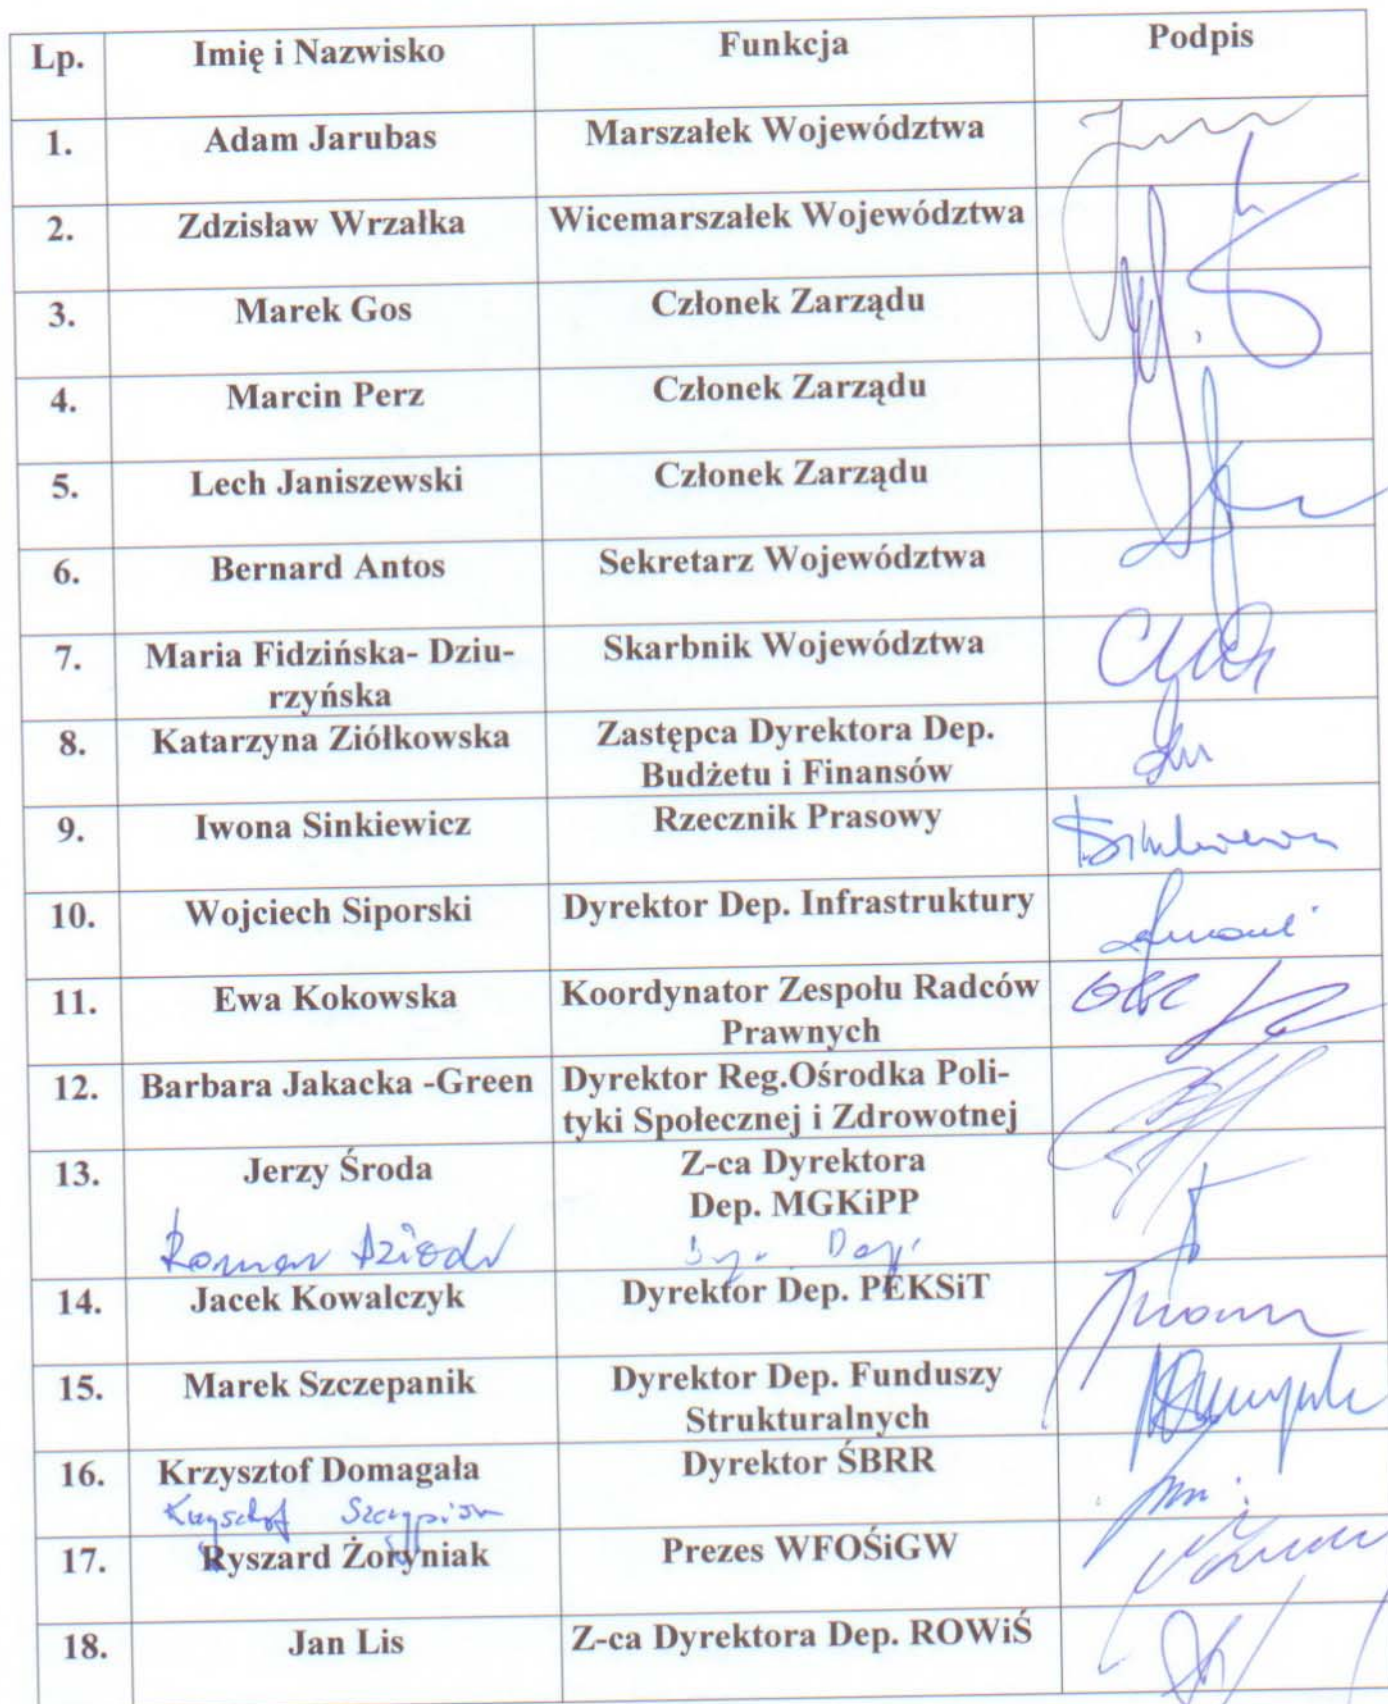 Lp. Imię i Nazwisko Funkcja Podpis
1. Adam Jarubas Marszałek Województwa
2. Zdzisław Wrzałka Wicemarszałek Województwa
3. Marek Gos Członek Zarządu
4. Marcin Perz Członek Zarządu
5. Lech Janiszewski Członek Zarządu
6. Bernard Antos Sekretarz Województwa
7. Maria Fidzińska- Dziu- Skarbnik Województwa
rzyńska
8. Katarzyna Ziółkowska Zastępca Dyrektora Dep.
Budżetu i Finansów
9. Iwona Sinkiewicz Rzecznik Prasowy
10. Wojciech Siporski Dyrektor Dep. Infrastruktury
11. Ewa Kokowska Koordynator Zespołu Radców
Prawnych
12. Barbara Jakacka -Green Dyrektor Reg.Ośrodka Poli-
tyki Społecznej i Zdrowotnej
13. Jerzy Środa Z-ca Dyrektora
Dep. MGKiPP
Roman
14. Jacek Kowalczyk Dyrektor Dep. PEKSiT
15. Marek Szczepanik Dyrektor Dep. Funduszy
Strukturalnych
16. Krzysztof Domagała Dyrektor ŚBRR
Krzysztof
17. Ryszard Żoryniak Prezes WFOŚiGW
18. Jan Lis Z-ca Dyrektora Dep. ROWiŚ